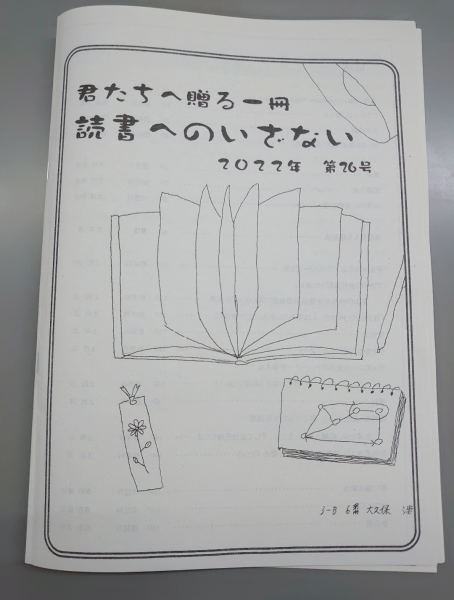 君たちへ贈る一冊
読書へのいざない
2022年 第26号
6番 大久保